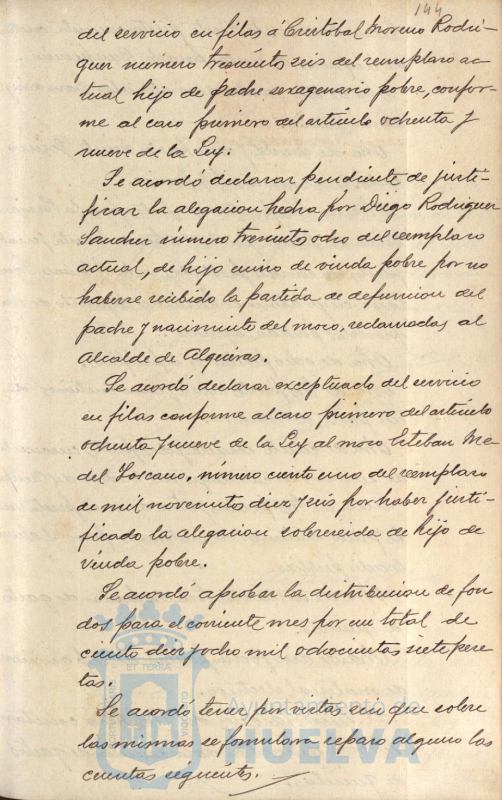 144
del servicio en filas á Cristobal Moreno Rodri-
guez número trescientos seis del reemplazo ac-
tual hijo de padre sexagenario pobre, confor-
me al caso primero del artículo ochenta y
nueve de la Ley.
Se acordó declarar pendiente de justi-
ficar la alegacion hecha por Diego Rodriguez
Sanchez número trescientos ocho del reemplazo
actual, de hijo único de viuda pobre por no
haberse recibido la partida de defuncion del
padre y nacimiento del mozo, reclamadas al
Alcalde de Algeciras.
Se acordó declarar exceptuado del servicio
en filas conforme al caso primero del artículo
ochenta y nueve de la Ley al mozo Esteban Me-
del Toscano, número ciento uno del reemplazo
de mil novecientos diez y seis por haber justi-
ficado la alegacion sobrevenida de hijo de
viuda pobre.
Se acordó aprobar la distribucion de fon-
dos para el corriente mes por un total de
ciento diez y ocho mil ochocientas siete pese-
tas.
Se acordó tener por vistas sin que sobre
las mismas se formulara reparo alguno las
cuentas siguientes.
ET TERRÆ
Ayuntamiento de
HUELVA